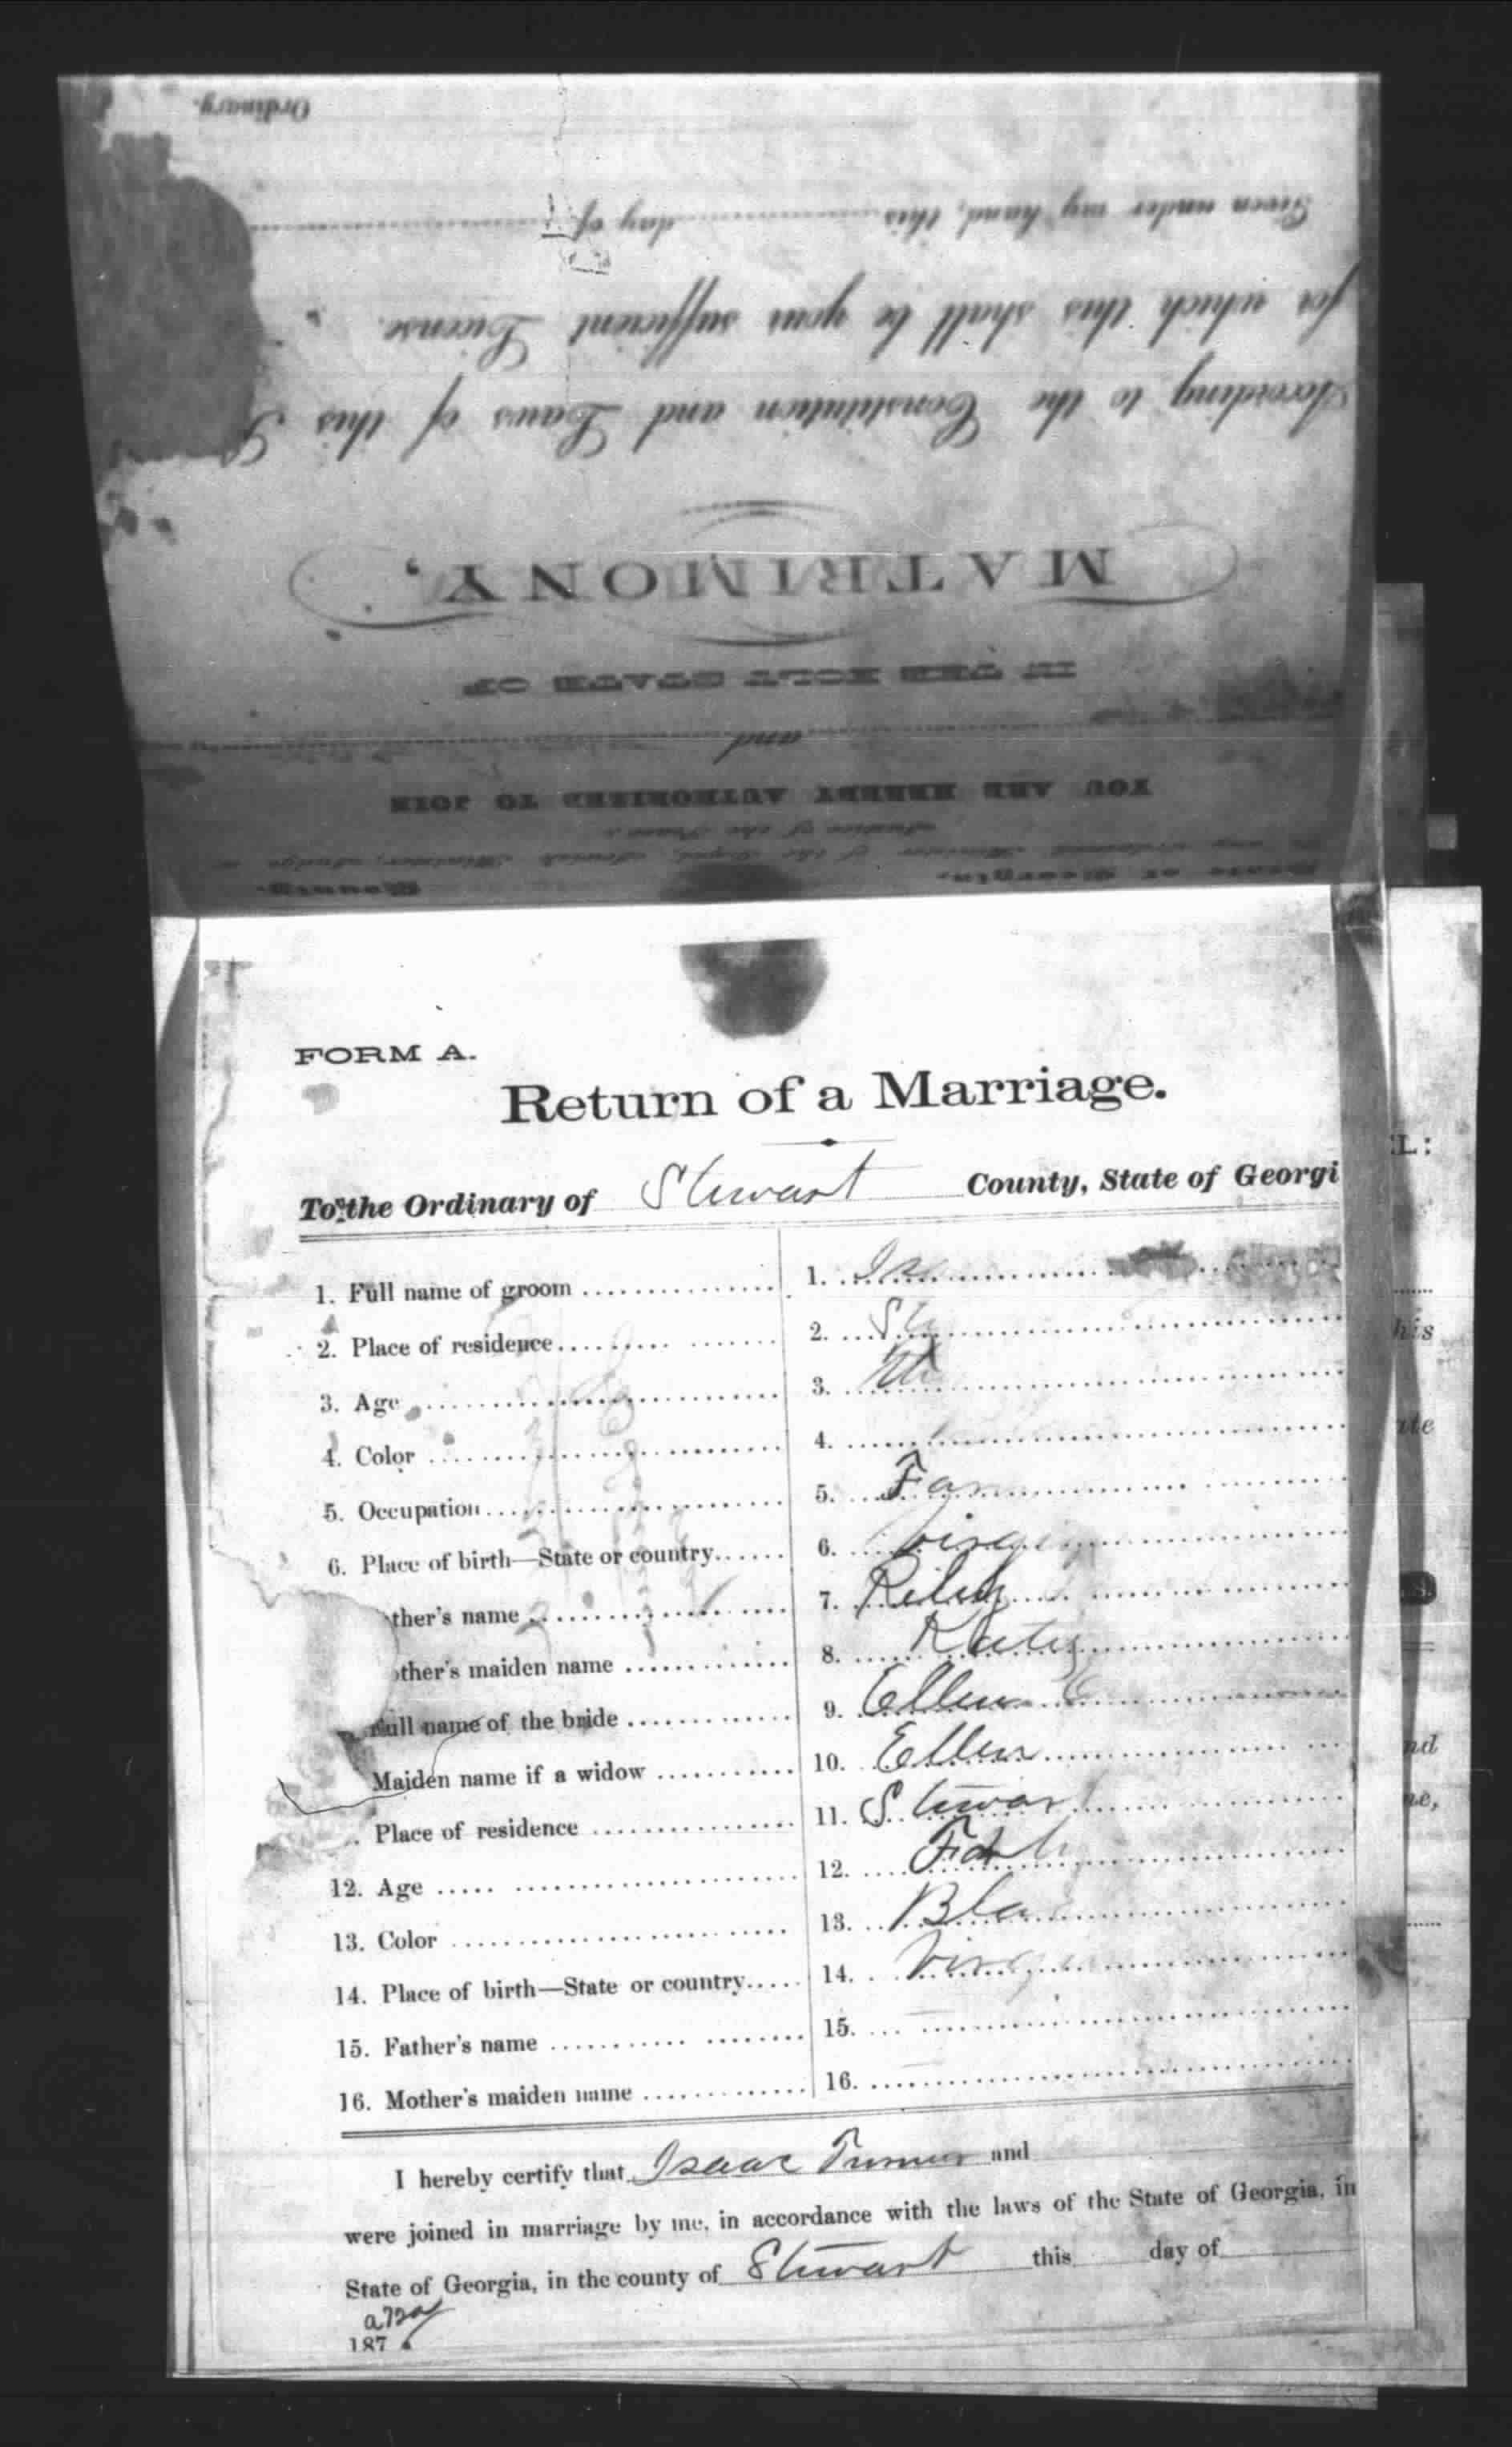 Ordinary.
Given under my hand, this day of
for which this shall be your sufficient License.
According to the Constitution and Laws of this S
MATRIMONY,
IN THE HOLY STATE OF
and
YOU ARE HEREBY AUTHORIZED TO JOIN
Justice of the Peace:
State of Georgia, County.
FORM A.
Return of a Marriage.
To the Ordinary of Stewart County, State of Georgi
1. Full name of groom 1. Is
2. Place of residence 2. St
3. Age 3.
4. Color 4.
5. Occupation 5. Farm
6. Place of birth—State or country 6. Virgi
ther's name 7. Riley
other's maiden name 8. Katy
Full name of the bride 9. Ellen
Maiden name if a widow 10. Ellen
Place of residence 11. Stewart
12. Age 12.
13. Color 13. Bla
14. Place of birth—State or country 14. Virg
15. Father's name 15.
16. Mother's maiden name 16.
I hereby certify that Isaac Turner and
were joined in marriage by me, in accordance with the laws of the State of Georgia, in
State of Georgia, in the county of Stewart this day of
187
L:
his
ate
nd
ne,